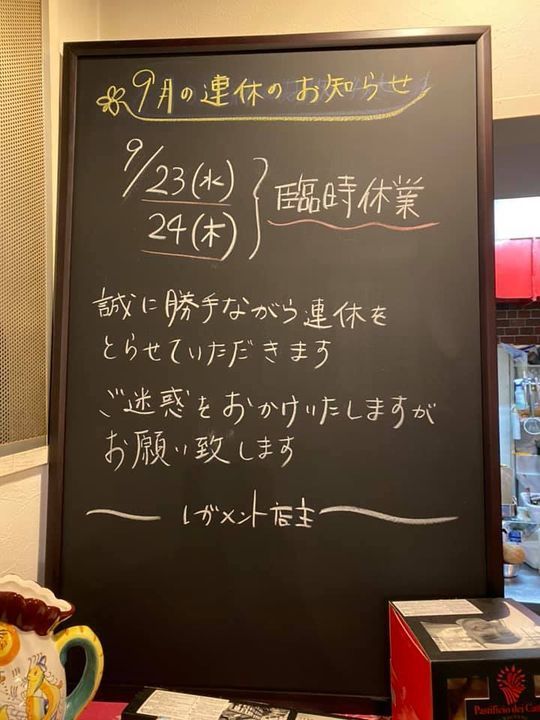 9月の連休のお知らせ
9/23(水)
24(木)
臨時休業
誠に勝手ながら連休を
とらせていただきます
ご迷惑をおかけいたしますが
お願い致します
レガメント店主
Pastificio dei